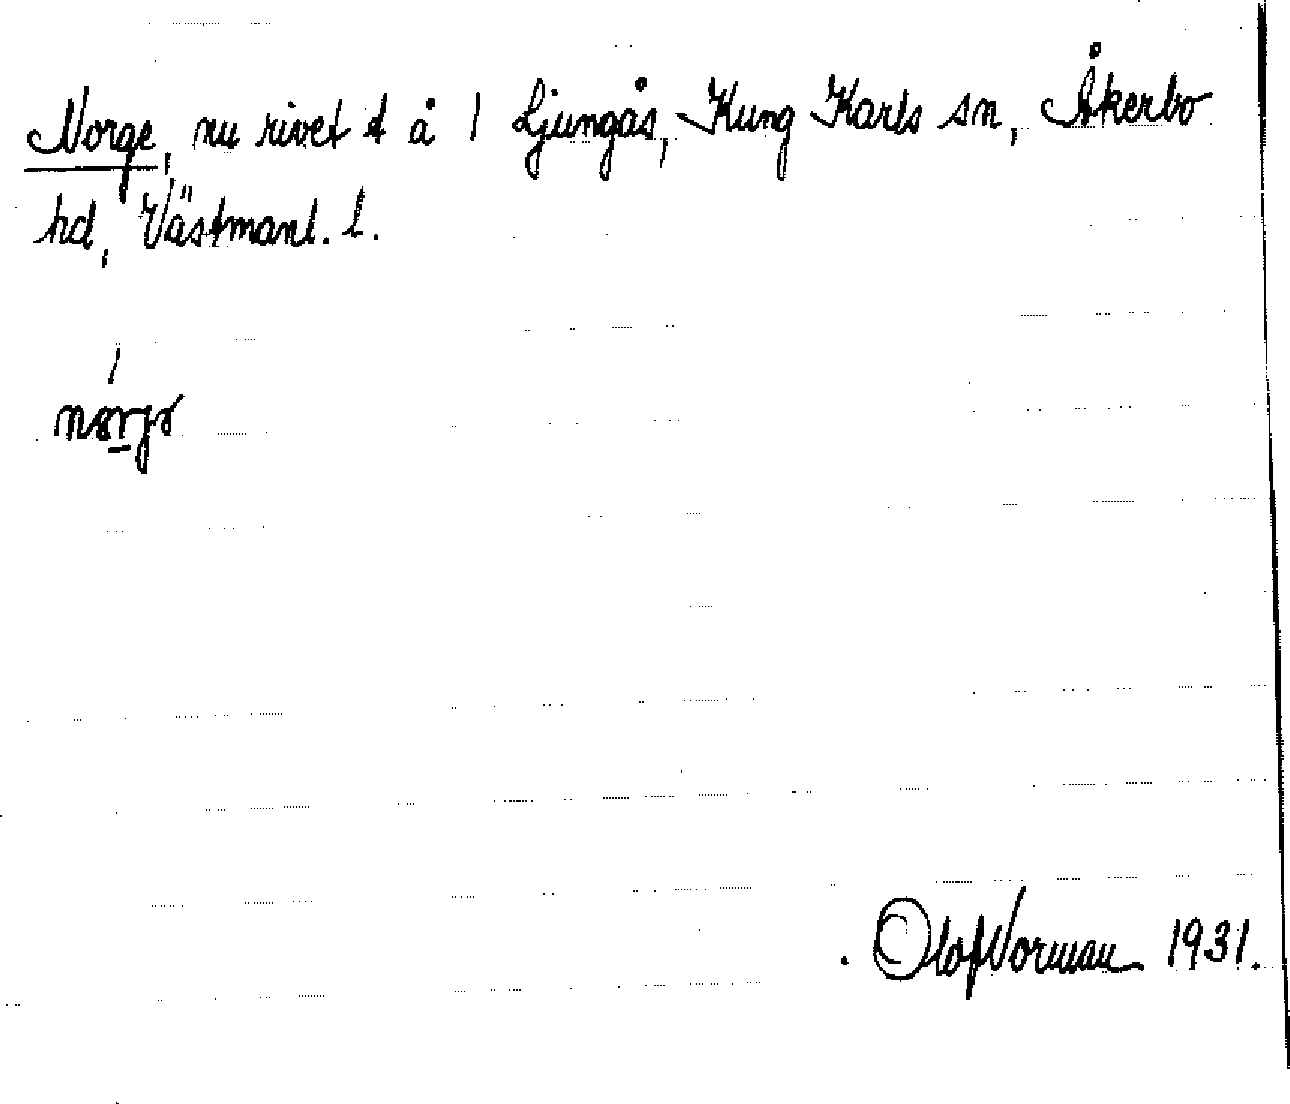 Norge, nu rivet t å 1 Ljungås, Kung Karls sn, Åkerbo
hd, Västmanl. l.
nǫrjə
Olof Norman 1931.